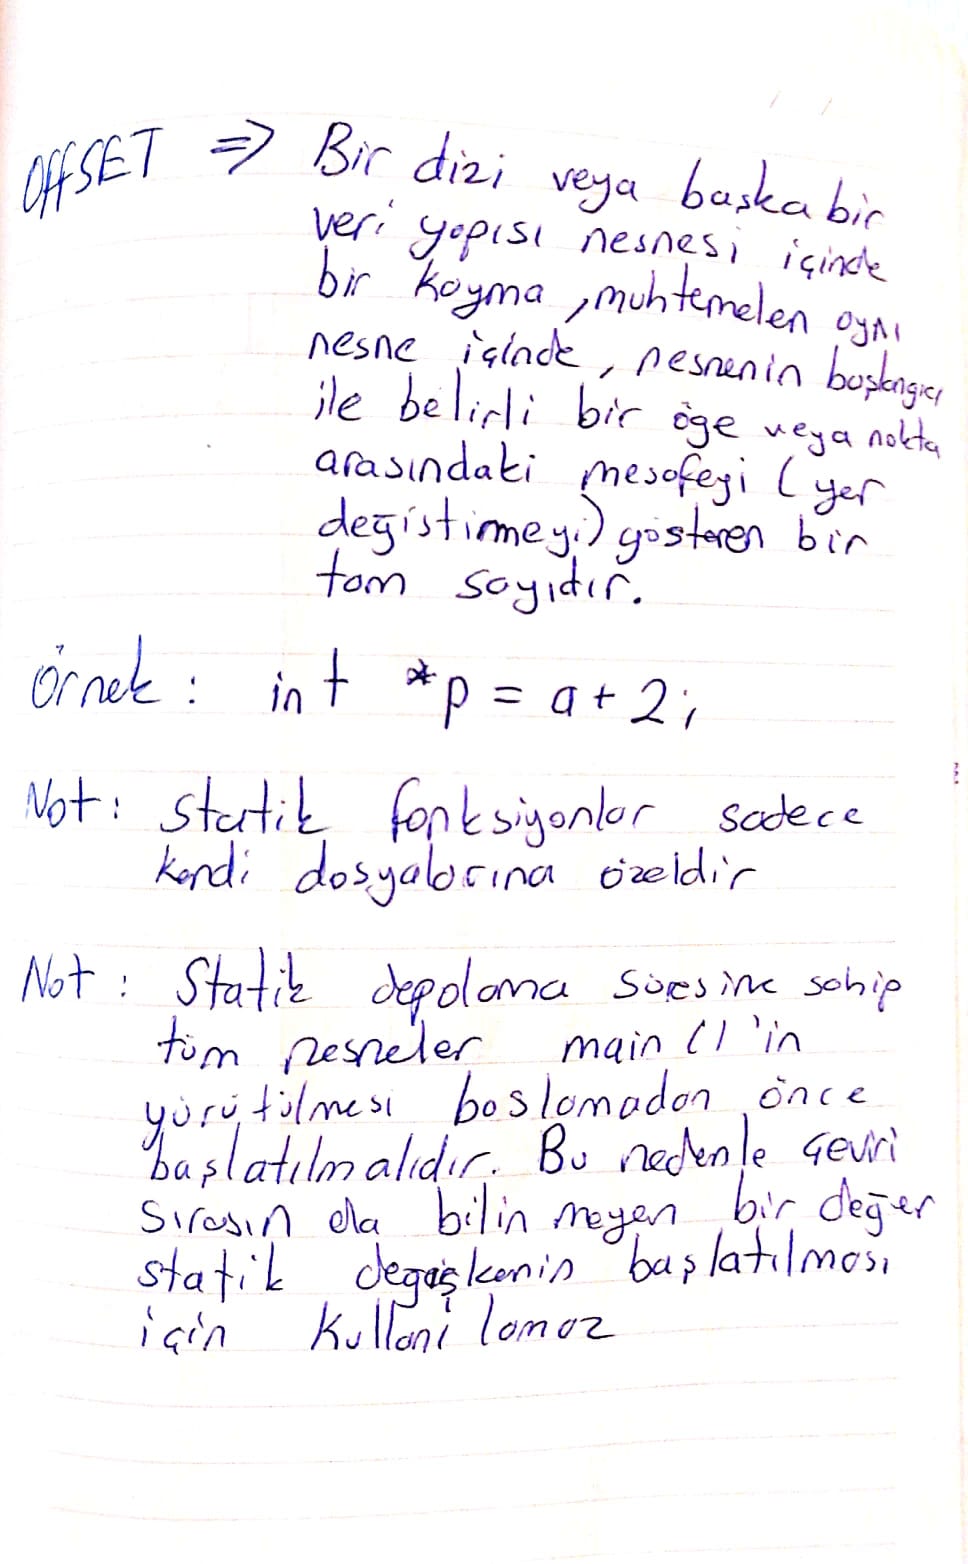 OFFSET => Bir dizi veya başka bir
veri yapısı nesnesi içinde
bir koyma, muhtemelen aynı
nesne içinde, nesnenin başlangıcı
ile belirli bir öge veya nokta
arasındaki mesafeyi (yer
değiştirmeyi) gösteren bir
tam sayıdır.
Örnek : int *p = a + 2;
Not: Statik fonksiyonlar sadece
kendi dosyalarına özeldir
Not : Statik depolama süresine sahip
tüm nesneler main()'in
yürütülmesi başlamadan önce
başlatılmalıdır. Bu nedenle çeviri
sırasında bilinmeyen bir değer
statik değişkenin başlatılması
için kullanılamaz